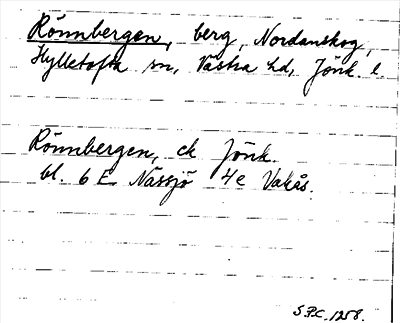 Rönnbergen, berg, Nordanskog,
Hylletofta sn, Västra hd, Jönk. l.
Rönnbergen, ek Jönk.
bl. 6 E Nässjö 4e Vakås.
S.P.C. 1258.